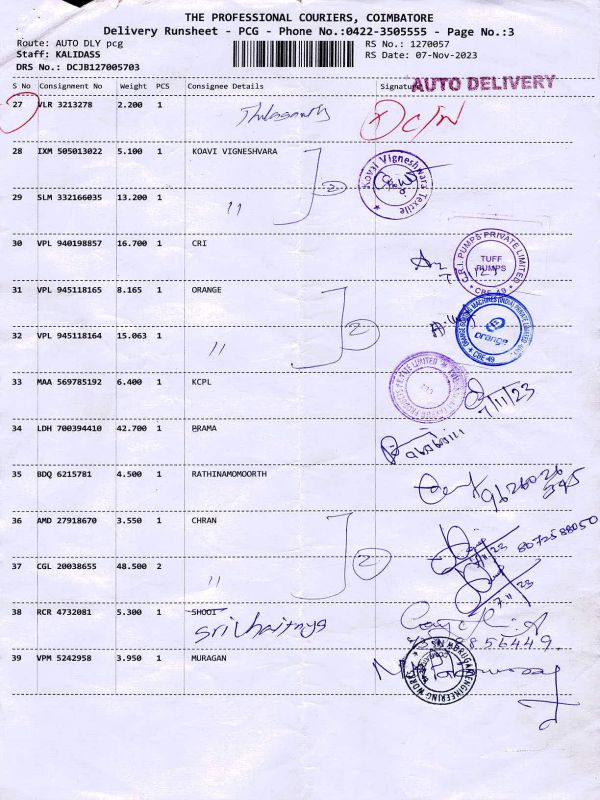 THE PROFESSIONAL COURIERS, COIMBATORE
Delivery Runsheet - PCG - Phone No.:0422-3505555 - Page No.:3
Route: AUTO DLY pcg RS No.: 1270057
Staff: KALIDASS RS Date: 07-Nov-2023
DRS No.: DCJB127005703
AUTO DELIVERY
S No Consignment No Weight PCS Consignee Details Signature
27 VLR 3213278 2.200 1
28 IXM 505013022 5.100 1 KOAVI VIGNESHVARA 2
Kovai Vigneshwara Textile
29 SLM 332166035 13.200 1 "
30 VPL 940198857 16.700 1 CRI
C.R.I. PUMPS PRIVATE LIMITED
TUFF PUMPS
CBE-49
31 VPL 945118165 8.165 1 ORANGE
32 VPL 945118164 15.063 1 " 2
orange
CBE-49
33 MAA 569785192 6.400 1 KCPL
7/11/23
34 LDH 700394410 42.700 1 PRAMA
35 BDQ 6215781 4.500 1 RATHINAMOMOORTH
9626026
545
36 AMD 27918670 3.550 1 CHRAN
8072588050
37 CGL 20038655 48.500 2 " 2
38 RCR 4732081 5.300 1 SHOOI
39 VPM 5242958 3.950 1 MURAGAN
ENGINEERING WORKS